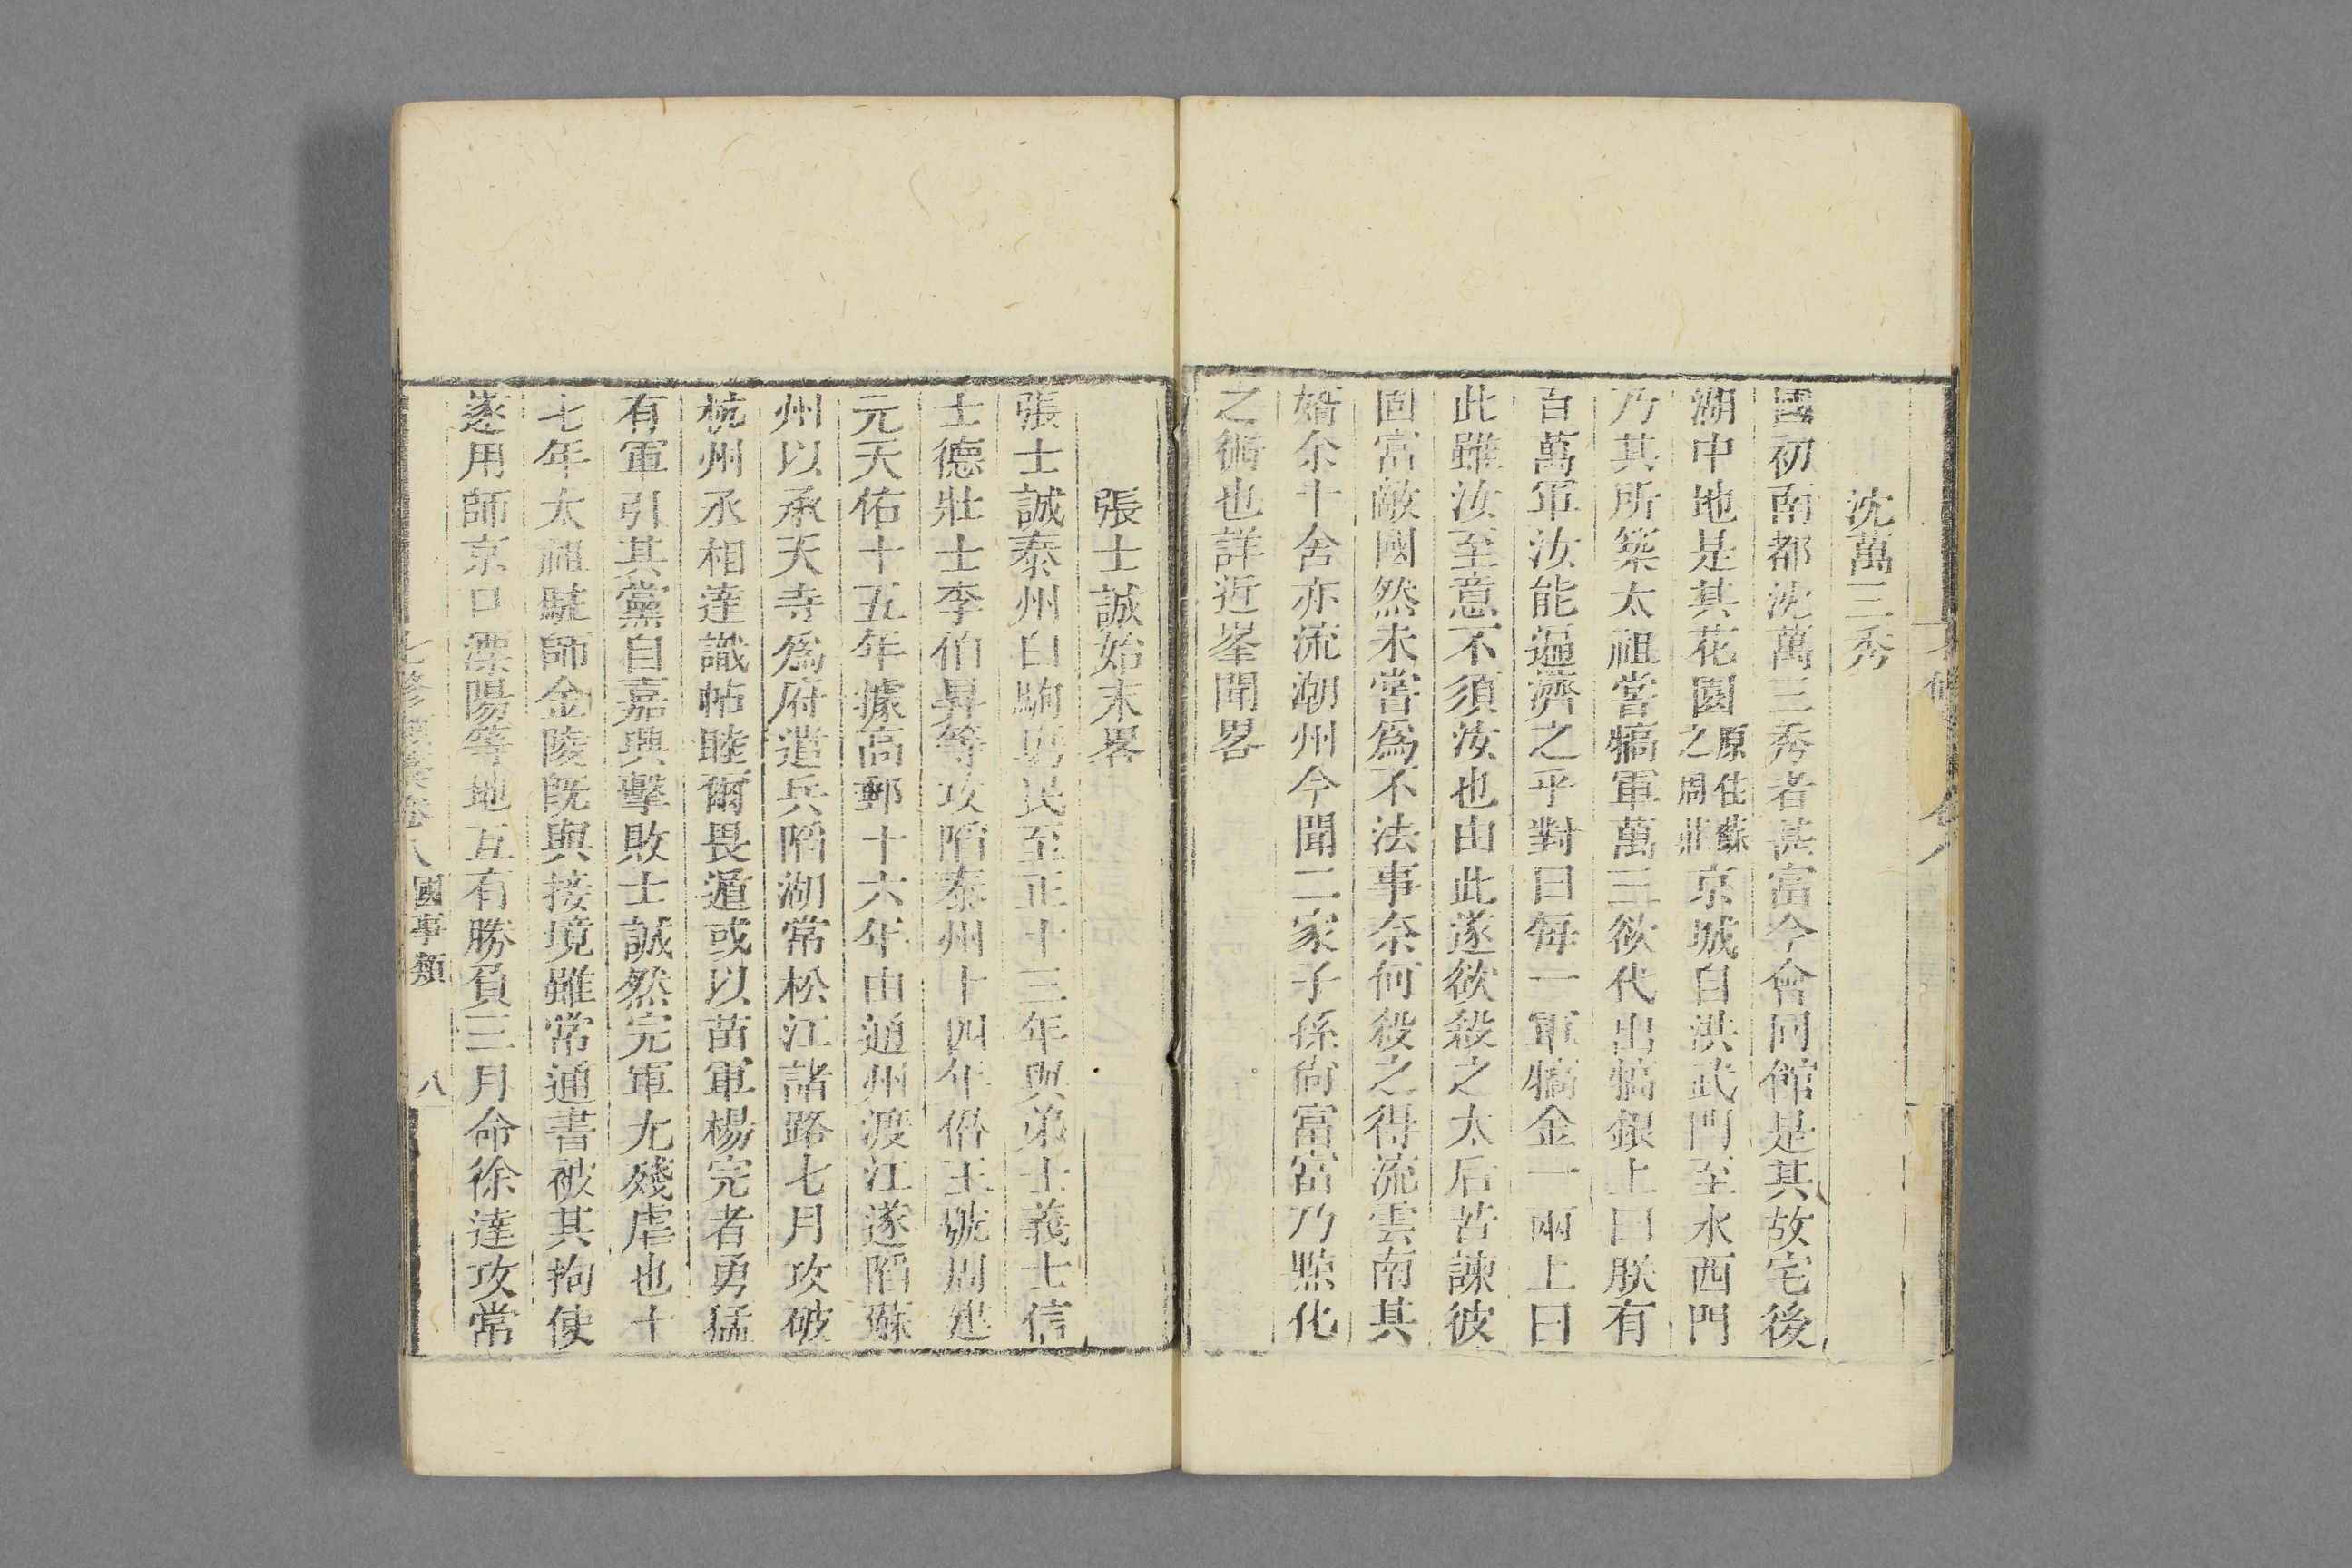 沈萬三秀
國初南都沈萬三秀者甚富今會同館是其故宅後
湖中地是其花園原住蘇之周莊京城自洪武門至水西門
乃其所築太祖嘗犒軍萬三欲代出犒銀上曰朕有
百萬軍汝能遍濟之乎對曰每一軍犒金一兩上曰
此雖汝至意不須汝也由此遂欲殺之太后苦諫彼
固富敵國然未嘗爲不法事奈何殺之得流雲南其
婿余十舍亦流潮州今聞二家子孫尚富富乃㸃化
之術也詳近峯聞畧
張士誠始末畧
張士誠泰州白駒塲民至正十三年與弟士義士信
士德壯士李伯昇等攻陷泰州十四年僭王號周建
元天佑十五年據高郵十六年由通州渡江遂陷蘇
州以承天寺爲府遣兵陷湖常松江諸路七月攻破
杭州丞相達識帖睦爾畏遁或以苗軍楊完者勇猛
有軍引其黨自嘉興擊敗士誠然完軍尤殘虐也十
七年太祖駐師金陵既與接境雖常通書被其拘使
遂用師京口溧陽等地互有勝負三月命徐達攻常
七修類稾卷八 國事類 八